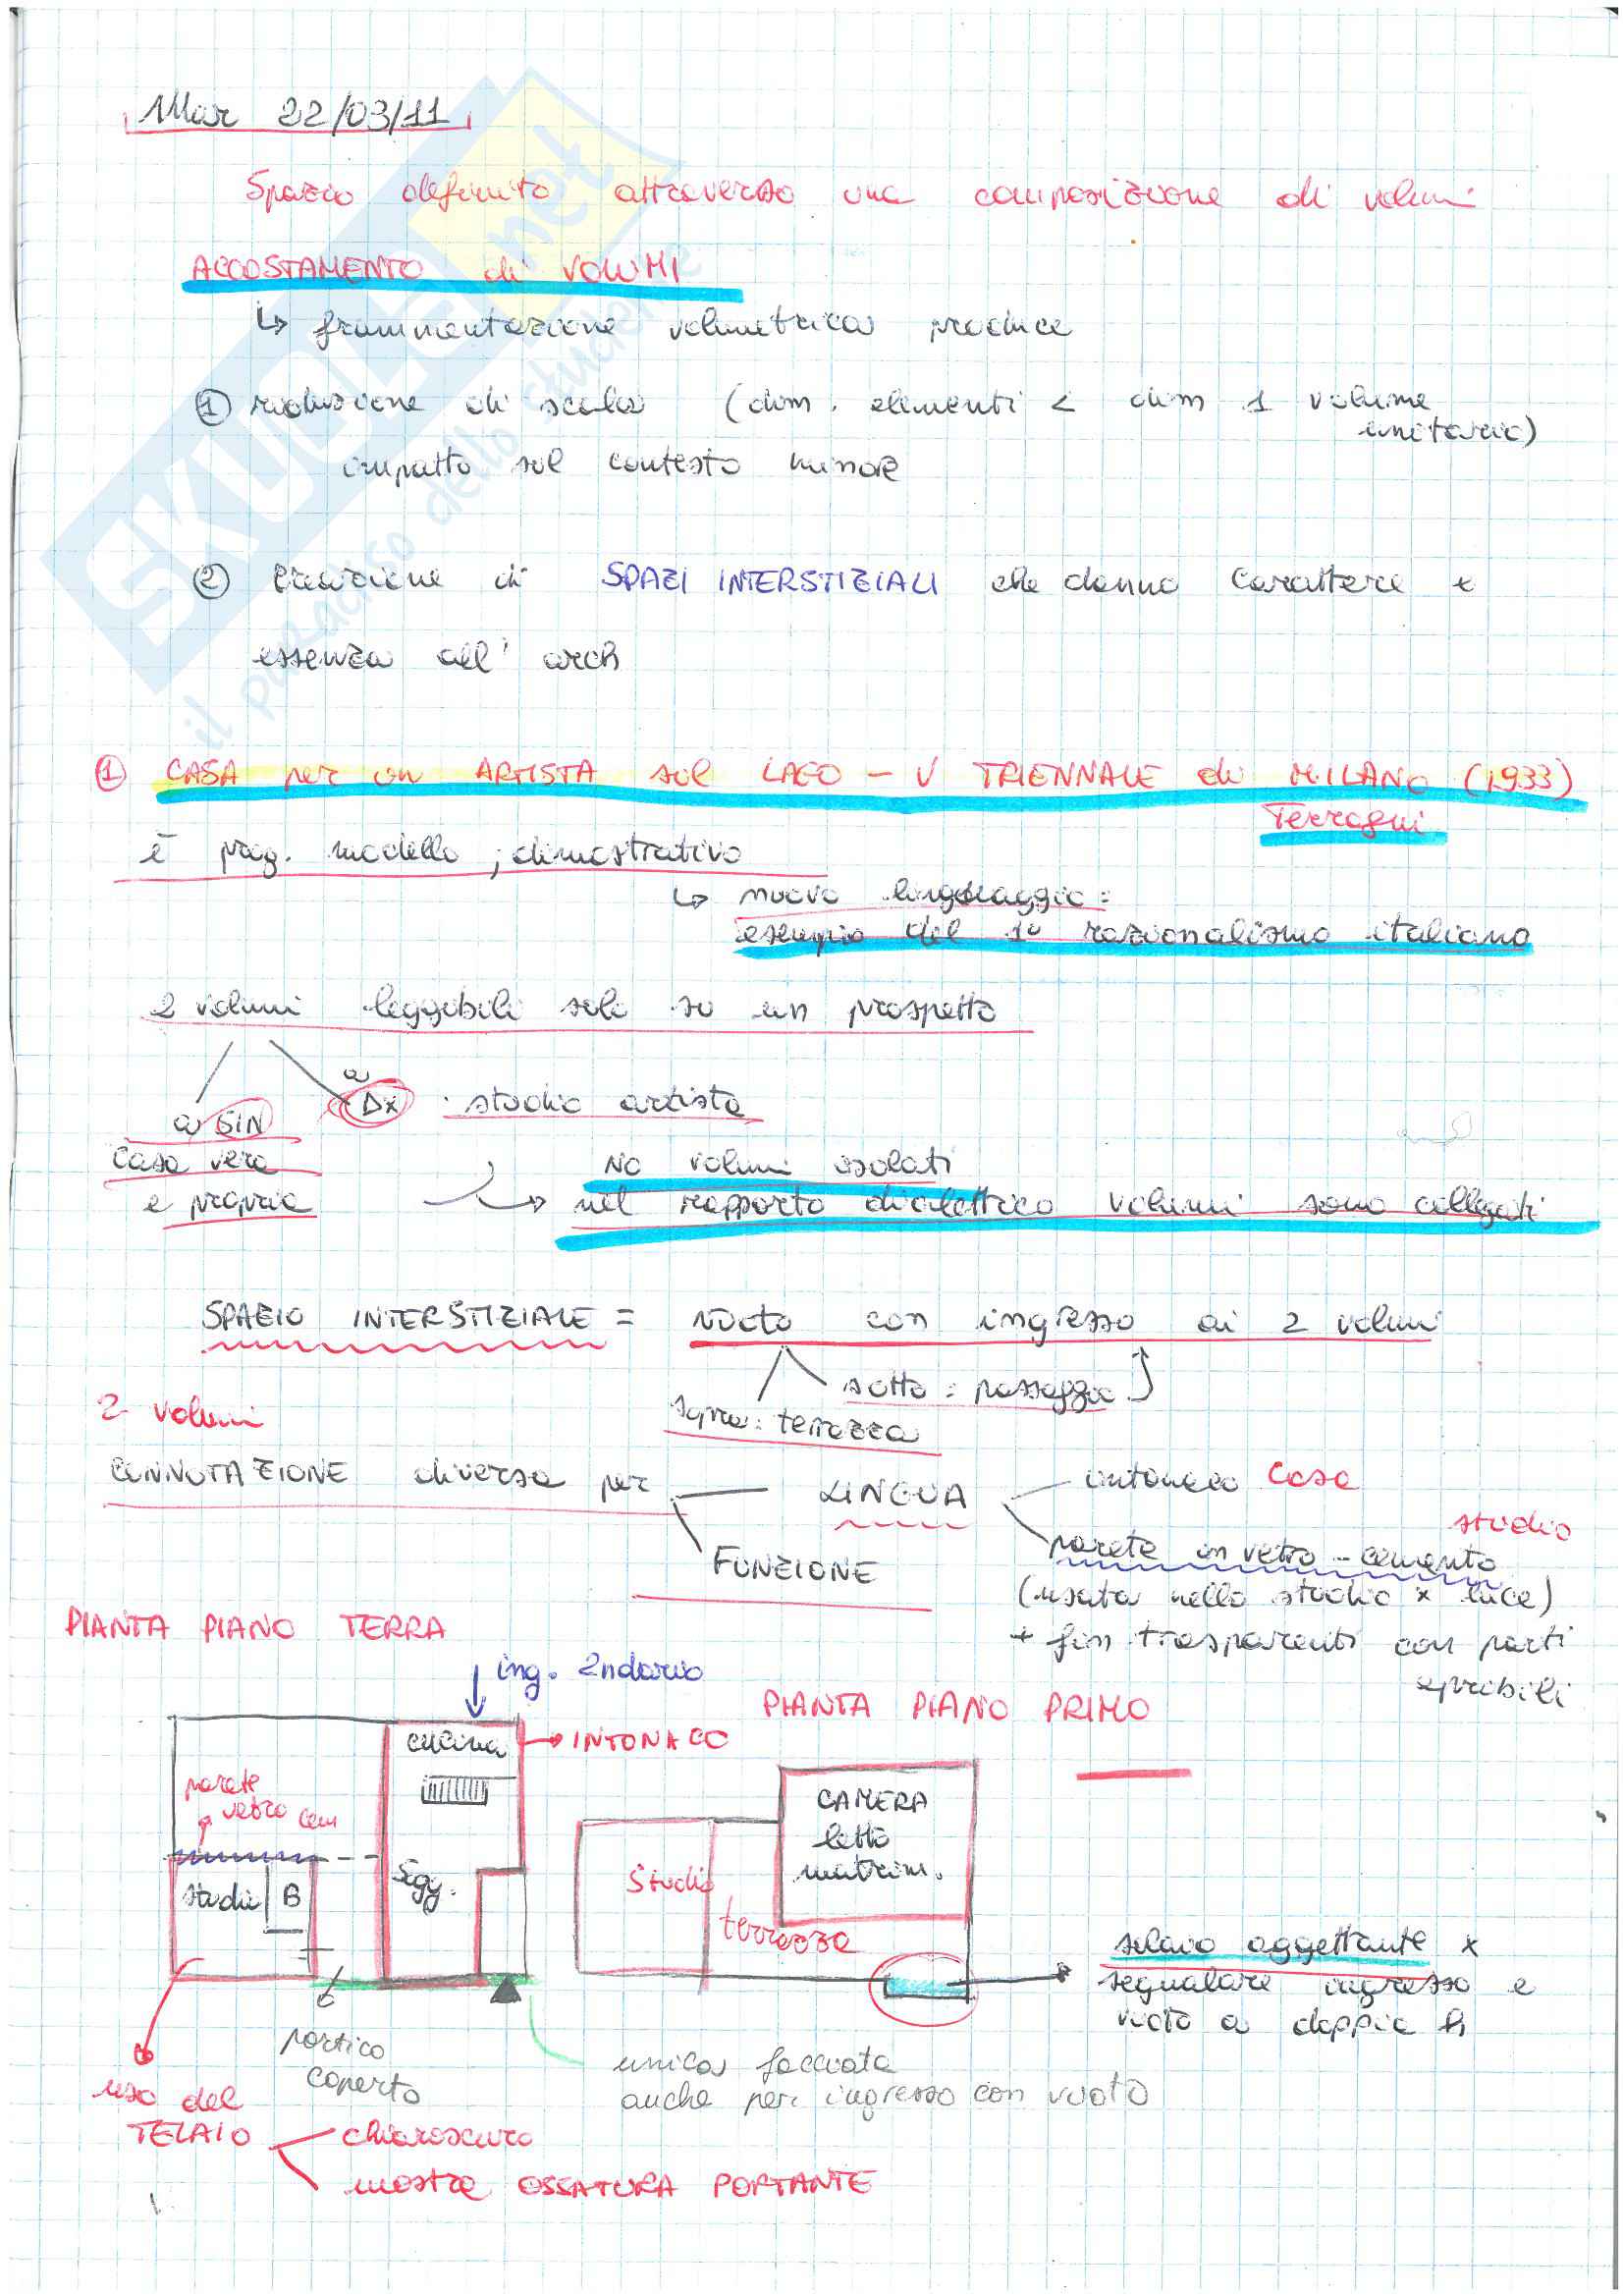 Mar 22/03/11
Spazio definito attraverso una composizione di volumi
ACCOSTAMENTO di VOLUMI
↳ frammentazione volumetrica produce
① riduzione di scala (dim. elementi < dim 1 volume
unitario)
impatto sul contesto minore
② creazione di SPAZI INTERSTIZIALI che danno carattere e
essenza all' arch
① CASA per un ARTISTA sul LAGO - V TRIENNALE di MILANO (1933)
Terragni
è prog. modello, dimostrativo
↳ nuovo linguaggio:
esempio del 1° razionalismo italiano
2 volumi leggibili solo su un prospetto
a
a SIN
DX : studio artista
casa vera
e propria
NO volumi isolati
nel rapporto dialettico volumi sono collegati
SPAZIO INTERSTIZIALE = vuoto con ingresso ai 2 volumi
sotto: passaggio
sopra: terrazza
2 volumi
CONNOTAZIONE diversa per
LINGUA
intonaco casa
studio
parete in vetro-cemento
(usata nello studio x luce)
+ fin trasparenti con parti
apribili
FUNZIONE
PIANTA PIANO TERRA
ing. 2ndario
PIANTA PIANO PRIMO
cucina
→ INTONACO
parete
vetro cem
studio
B
Sogg.
CAMERA
letto
matrim.
Studio
terrazza
solaio aggettante x
segnalare ingresso e
vuoto a doppia h
portico
coperto
unica facciata
anche per ingresso con vuoto
uso del
TELAIO
chiaroscuro
mostra OSSATURA PORTANTE
SKUOLA.net
il paradiso dello studente